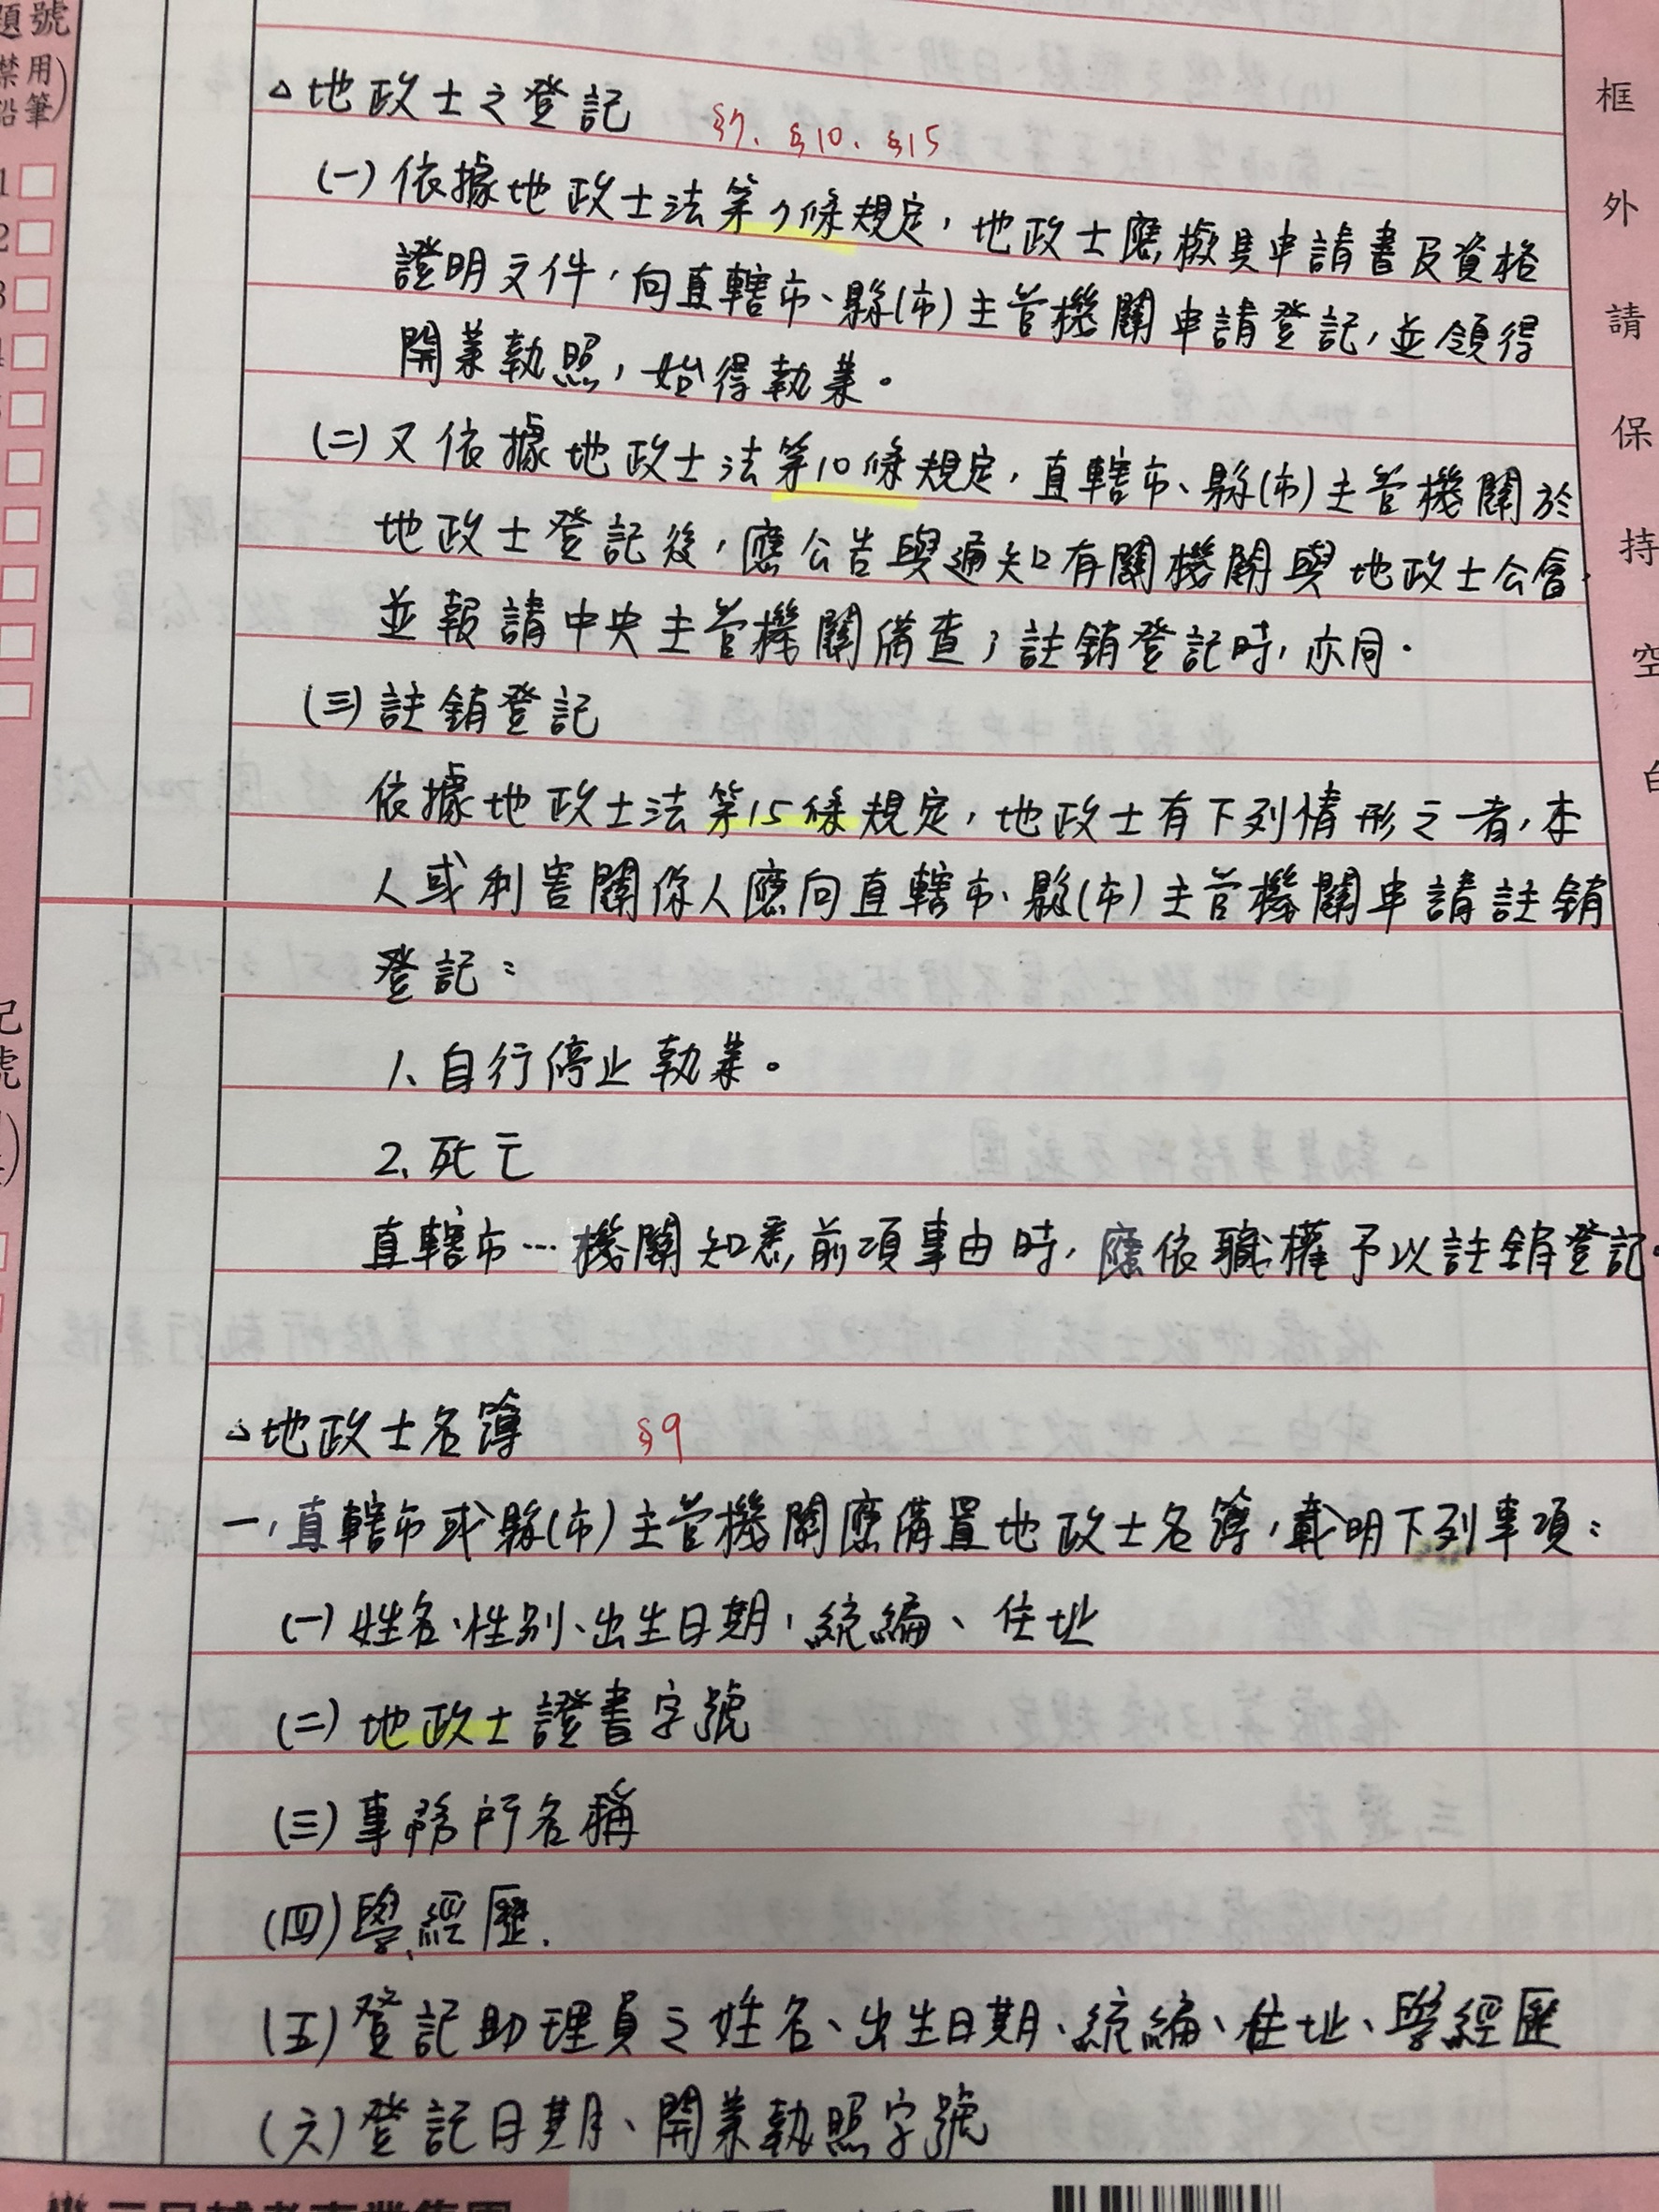 題號
禁用
鉛筆)
△地政士之登記 §7、§10、§15
(一)依據地政士法第7條規定，地政士應檢具申請書及資格
證明文件，向直轄市、縣(市)主管機關申請登記，並領得
開業執照，始得執業。
(二)又依據地政士法第10條規定，直轄市、縣(市)主管機關於
地政士登記後，應公告與通知有關機關與地政士公會，
並報請中央主管機關備查；註銷登記時，亦同。
(三)註銷登記
依據地政士法第15條規定，地政士有下列情形之一者，本
人或利害關係人應向直轄市、縣(市)主管機關申請註銷
登記：
1、自行停止執業。
2、死亡
直轄市…機關知悉前項事由時，應依職權予以註銷登記。
△地政士名簿 §9
一，直轄市或縣(市)主管機關應備置地政士名簿，載明下列事項：
(一)姓名、性別、出生日期，統編、住址
(二)地政士證書字號
(三)事務所名稱
(四)學、經歷.
(五)登記助理員之姓名、出生日期、統編、住址、學經歷
(六)登記日期、開業執照字號
框外請保持空白